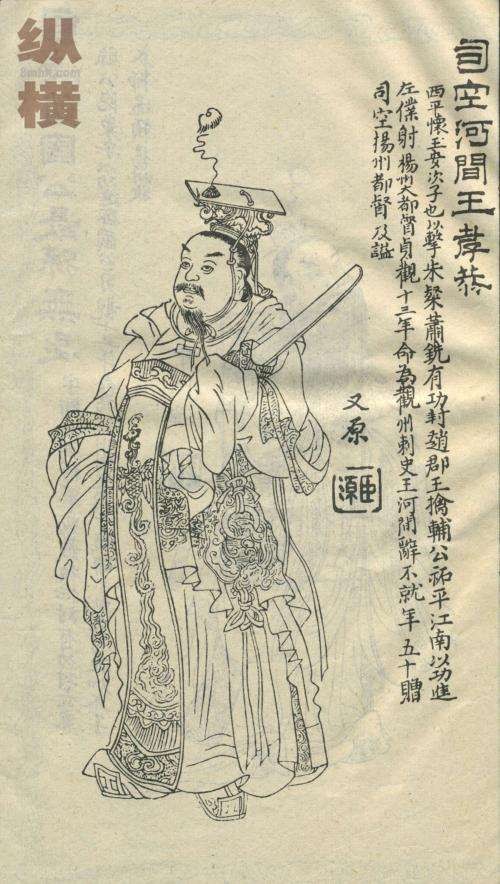 司空河間王孝恭
西平懷王安次子也以擊朱粲蕭銑有功封趙郡王擒輔公祏平江南以功進
左僕射楊州大都督貞觀十三年命為觀州刺史王河間辭不就年五十贈
司空揚州都督及謚
又原
纵横